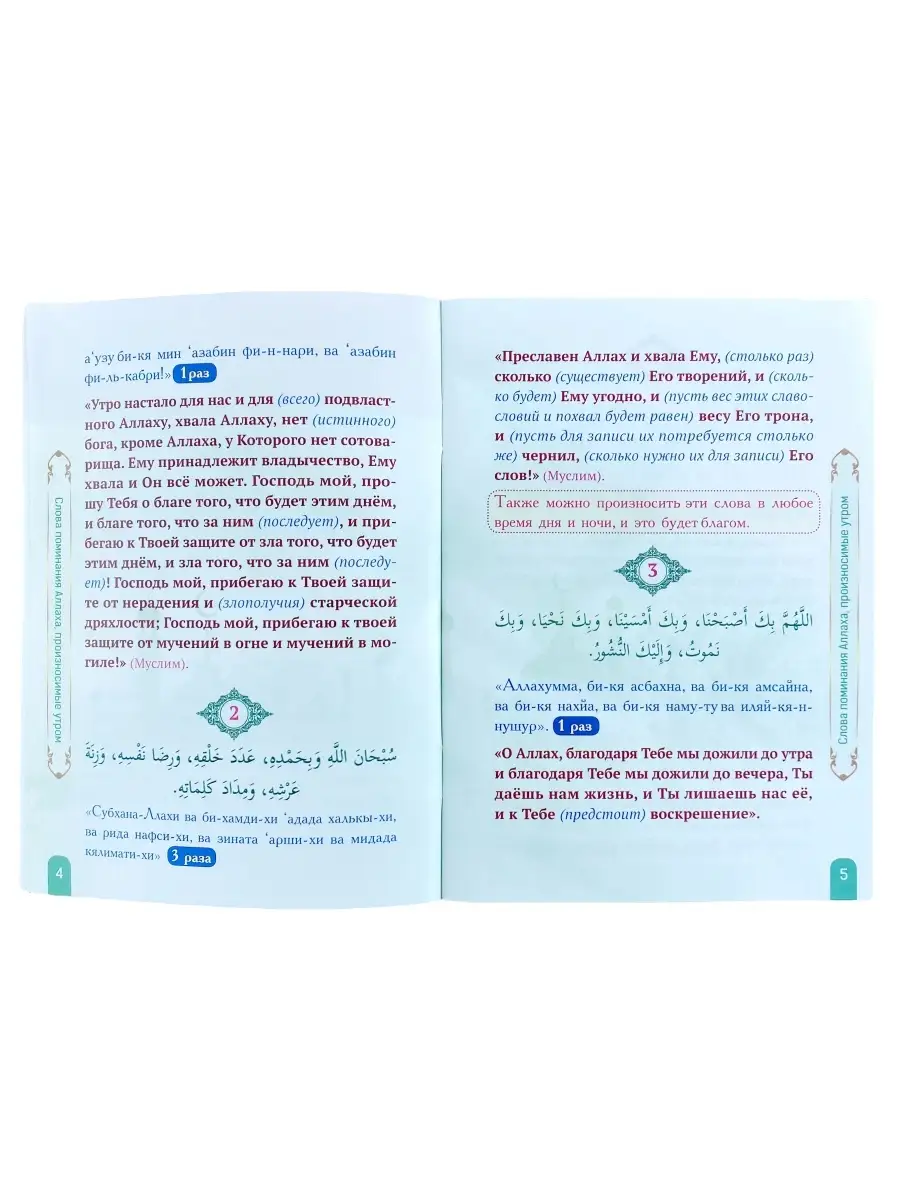 а‘узу би-кя мин ‘азабин фи-н-нари, ва ‘азабин
фи-ль-кабри!» 1 раз
«Утро настало для нас и для (всего) подвласт-
ного Аллаху, хвала Аллаху, нет (истинного)
бога, кроме Аллаха, у Которого нет сотова-
рища. Ему принадлежит владычество, Ему
хвала и Он всё может. Господь мой, про-
шу Тебя о благе того, что будет этим днём,
и благе того, что за ним (последует), и при-
бегаю к Твоей защите от зла того, что будет
этим днём, и зла того, что за ним (последу-
ет)! Господь мой, прибегаю к Твоей защи-
те от нерадения и (злополучия) старческой
дряхлости; Господь мой, прибегаю к твоей
защите от мучений в огне и мучений в мо-
гиле!» (Муслим).
2
سُبْحَانَ اللَّهِ وَبِحَمْدِهِ، عَدَدَ خَلْقِهِ، وَرِضَا نَفْسِهِ، وَزِنَةَ
عَرْشِهِ، وَمِدَادَ كَلِمَاتِهِ.
«Субхана-Ллахи ва би-хамди-хи ‘адада халькы-хи,
ва рида нафси-хи, ва зината ‘арши-хи ва мидада
кялимати-хи» 3 раза
Слова поминания Аллаха, произносимые утром
4
«Преславен Аллах и хвала Ему, (столько раз)
сколько (существует) Его творений, и (сколь-
ко будет) Ему угодно, и (пусть вес этих славо-
словий и похвал будет равен) весу Его трона,
и (пусть для записи их потребуется столько
же) чернил, (сколько нужно их для записи) Его
слов!» (Муслим).
Также можно произносить эти слова в любое
время дня и ночи, и это будет благом.
3
اللَّهُمَّ بِكَ أَصْبَحْنَا، وَبِكَ أَمْسَيْنَا، وَبِكَ نَحْيَا، وَبِكَ
نَمُوتُ، وَإِلَيْكَ النُّشُورُ.
«Аллахумма, би-кя асбахна, ва би-кя амсайна,
ва би-кя нахйа, ва би-кя наму-ту ва иляй-кя-н-
нушур». 1 раз
«О Аллах, благодаря Тебе мы дожили до утра
и благодаря Тебе мы дожили до вечера, Ты
даёшь нам жизнь, и Ты лишаешь нас её,
и к Тебе (предстоит) воскрешение».
Слова поминания Аллаха, произносимые утром
5